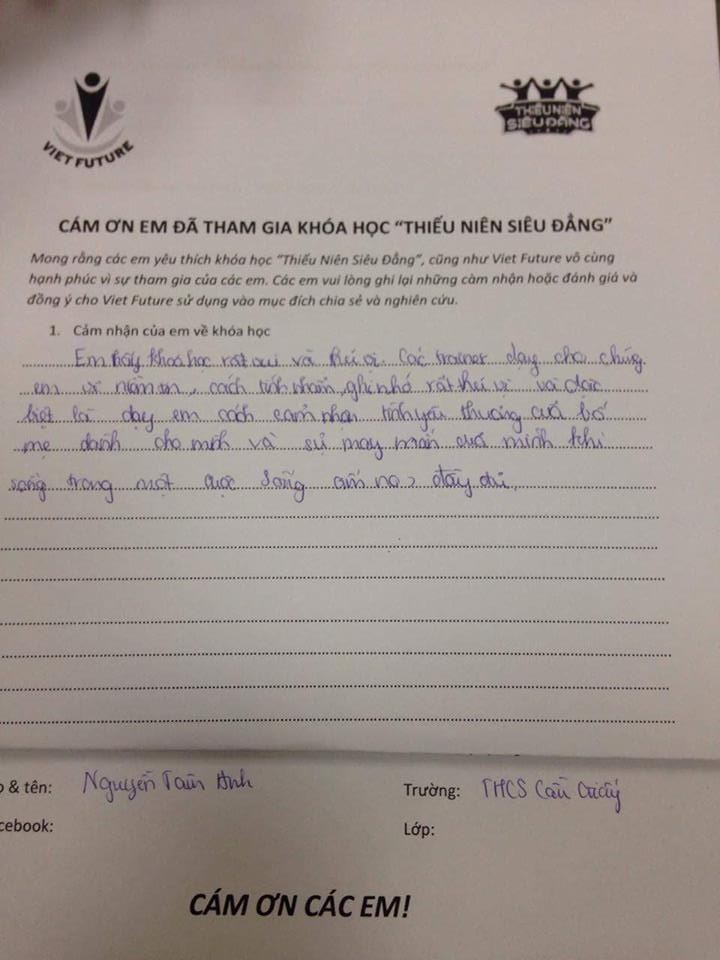 VIET FUTURE
THIẾU NIÊN
SIÊU ĐẲNG
CÁM ƠN EM ĐÃ THAM GIA KHÓA HỌC “THIẾU NIÊN SIÊU ĐẲNG”
Mong rằng các em yêu thích khóa học “Thiếu Niên Siêu Đẳng”, cũng như Viet Future vô cùng
hạnh phúc vì sự tham gia của các em. Các em vui lòng ghi lại những cảm nhận hoặc đánh giá và
đồng ý cho Viet Future sử dụng vào mục đích chia sẻ và nghiên cứu.
1. Cảm nhận của em về khóa học
Em thấy khoá học rất vui và thú vị. Các trainer dạy cho chúng
em về niềm tin, cách tính nhẩm, ghi nhớ rất thú vị và đặc
biệt là dạy em cách cảm nhận tình yêu thương của bố
mẹ dành cho mình và sự may mắn của mình khi
sống trong một cuộc sống ấm no, đầy đủ.
& tên: Nguyễn Anh
Trường: THCS Cầu Giấy
cebook:
Lớp:
CÁM ƠN CÁC EM!